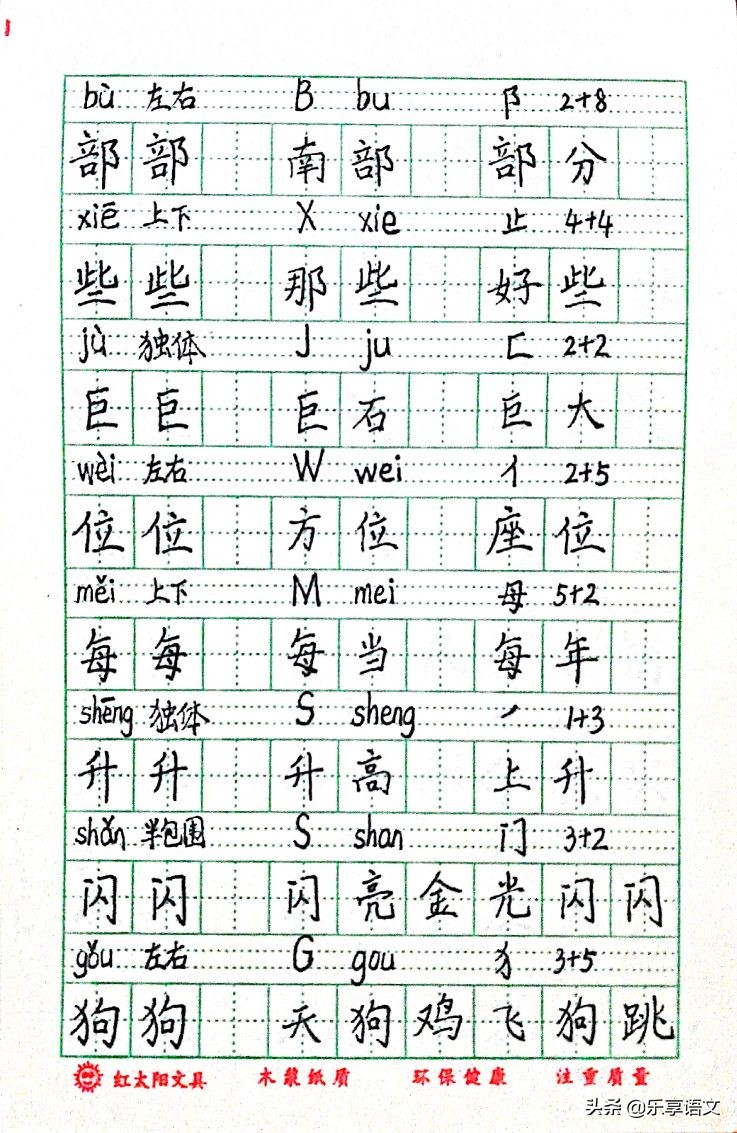 bù 左右 B bu 阝 2+8
部 部 南 部 部 分
xiē 上下 X xie 止 4+4
些 些 那 些 好 些
jù 独体 J ju 匚 2+2
巨 巨 巨 石 巨 大
wèi 左右 W wei 亻 2+5
位 位 方 位 座 位
měi 上下 M mei 母 5+2
每 每 每 当 每 年
shēng 独体 S sheng ノ 1+3
升 升 升 高 上 升
shǎn 半包围 S shan 门 3+2
闪 闪 闪 亮 金 光 闪 闪
gǒu 左右 G gou 犭 3+5
狗 狗 天 狗 鸡 飞 狗 跳
红太阳文具 木浆纸质 环保健康 注重质量
头条 @乐享语文